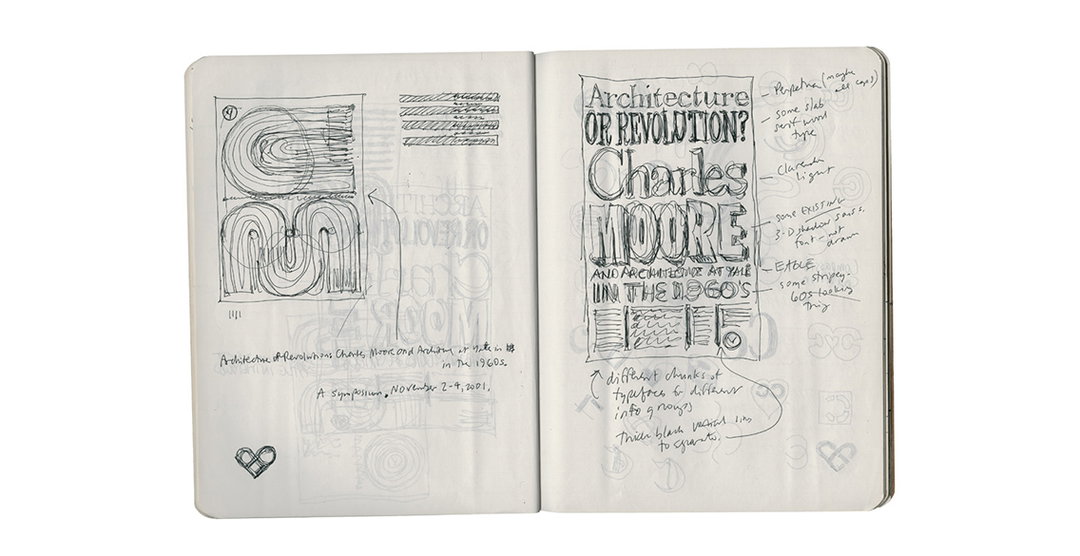 Architecture or Revolution: Charles Moore and Architecture at Yale in
in the 1960s.
A symposium, November 2-4, 2001.
Architecture
OR REVOLUTION?
Charles
MOORE
AND ARCHITECTURE AT YALE
IN THE 1960'S
Perpetua (maybe
all caps)
some slab
serif wood
type
Clarendon
Light
some EXISTING
3-D shadow sans.
font - not
drawn
EAGLE
some stripey-
60s looking
thing
different chunks of
typefaces for different
info groups
Thick black vertical lines
to separate